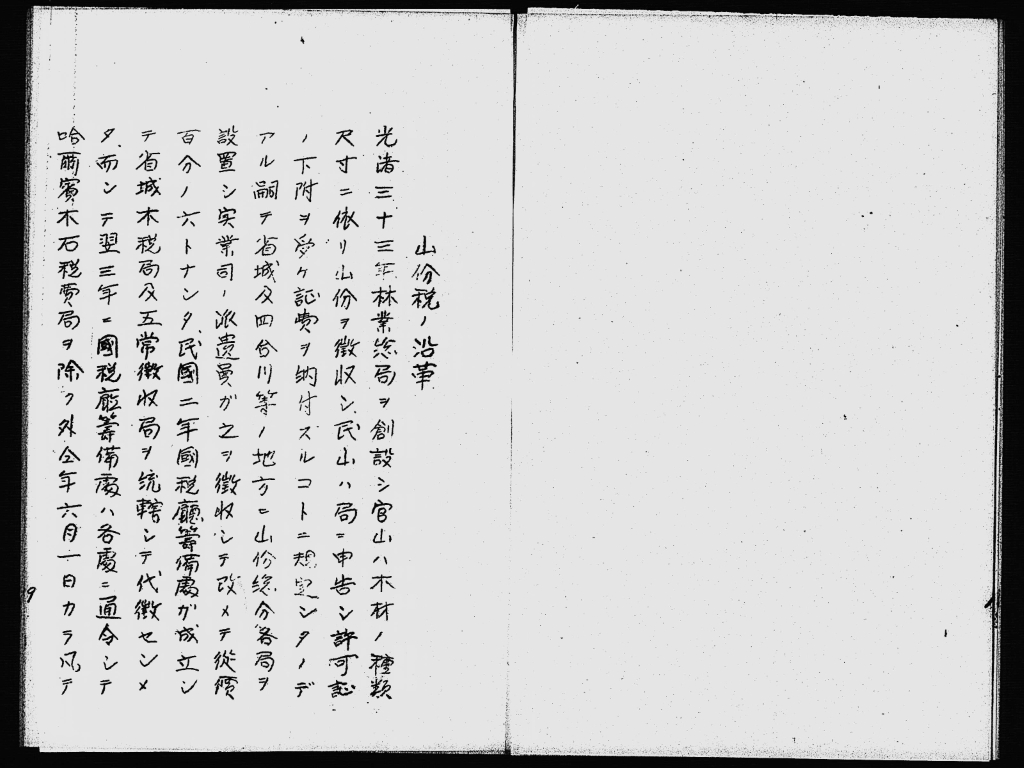 山份税ノ沿革
光緒三十三年林業総局ヲ創設シ官山ハ木材ノ種類
尺寸ニ依リ山份ヲ徴収シ民山ハ局ニ申告シ許可証
ノ下附ヲ受ケ証費ヲ納付スルコトニ規定シタノデ
アル嗣テ省城及四合川等ノ地方ニ山份総分各局ヲ
設置シ実業司ノ派遣員ガ之ヲ徴収シテ改メテ従價
百分ノ六トナシタ、民國二年國税廳籌備處ガ成立シ
テ省城木税局及五常徴収局ヲ統轄シテ代徴セシメ
タ、而シテ翌三年ニ國税廳籌備處ハ各處ニ通令シテ
哈爾賓木石税費局ヲ除ク外仝年六月一日カラ凡テ
9